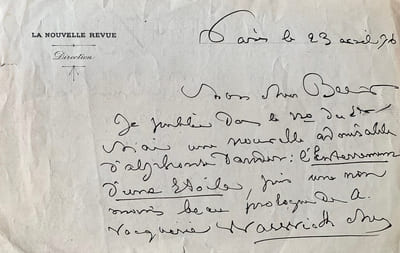 LA NOUVELLE REVUE
Direction
Paris le 23 avril 96
Mon cher
Je publie dans le No du 1er
Mai une nouvelle admirable
d'alphonse Daudet: l'Enterrement
d'une Etoile, puis une non
moins beau prologue de A.
Vacquerie